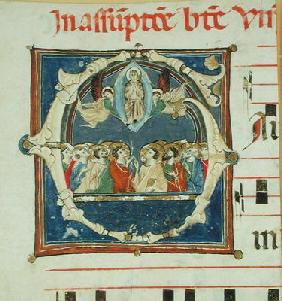 In assūptōe btē Vir
in